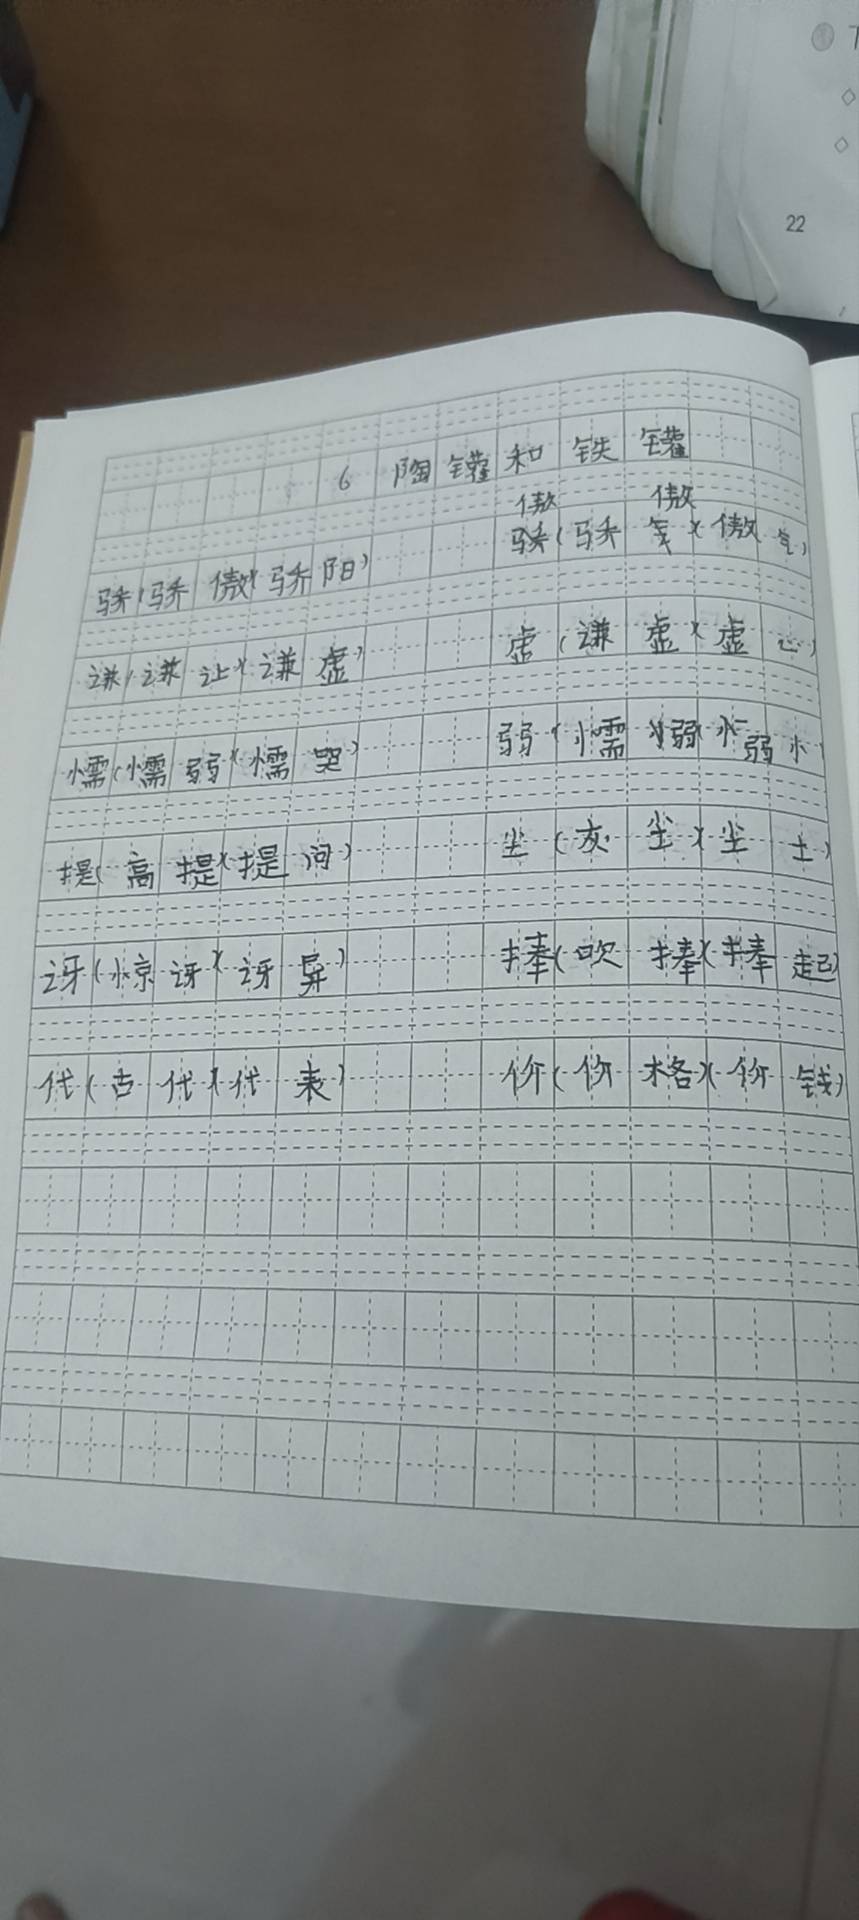 22
6 陶罐和铁罐
傲 傲
骄(骄傲)(骄阳) 骄(骄气)(傲气)
谦(谦让)(谦虚) 虚(谦虚)(虚心)
懦(懦弱)(懦哭) 弱(懦弱)(弱小)
提(高提)(提问) 尘(灰尘)(尘土)
讶(惊讶)(讶异) 捧(吹捧)(捧起)
代(古代)(代表) 价(价格)(价钱)